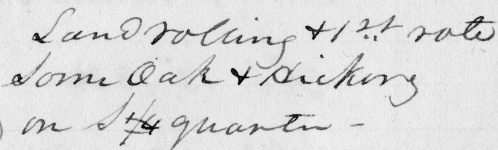 Land rolling & 1st rate
Some Oak & Hickory
on S 1/4 quarter -